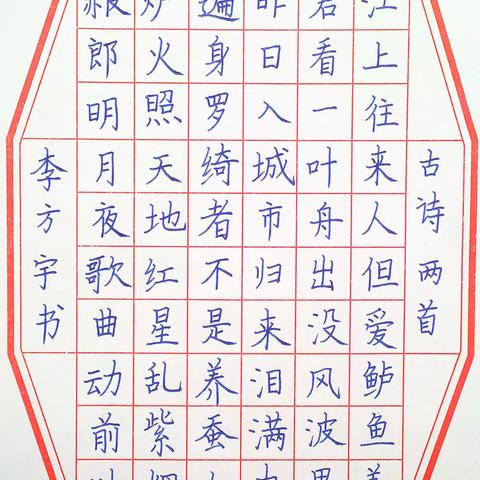 古诗两首
江上往来人但爱鲈鱼美
君看一叶舟出没风波里
昨日入城市归来泪满
遍身罗绮者不是养蚕
炉火照天地红星乱紫烟
赧郎明月夜歌曲动前
李方宇书